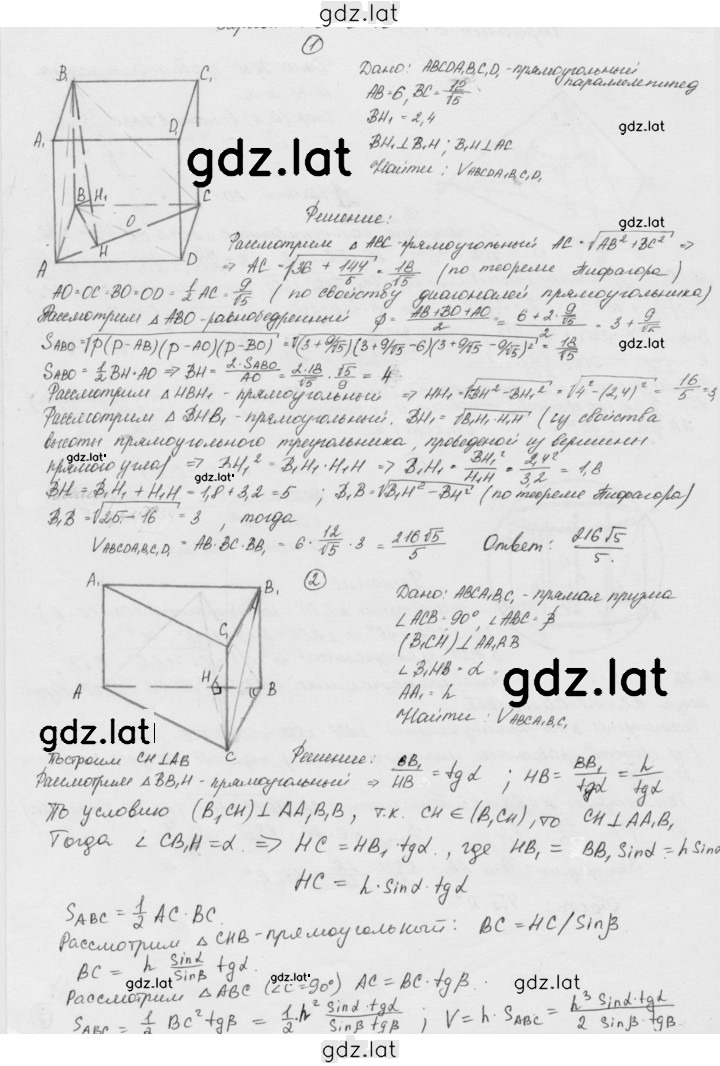 gdz.lat
1
Дано: ABCDA₁B₁C₁D₁ - прямоугольный
параллелепипед
AB=6, BC=12/√5
BH₁ = 2,4
BH₁⊥B₁H ; B₁H⊥AC
Найти: V ABCDA₁B₁C₁D₁
gdz.lat
gdz.lat
B₁ C₁
A₁ D₁
B H₁ C
O
H
A D
Решение:
gdz.lat
Рассмотрим △ ABC-прямоугольный AC = √AB² + BC² ⇒
⇒ AC = √36 + 144/5 = 18/√5 (по теореме Пифагора)
AO=OC=BO=OD= 1/2 AC = 9/√5 (по свойству диагоналей прямоугольника)
Рассмотрим △ ABO-равнобедренный P = AB+BO+AO/2 = 6+2·9/√5/2 = 3+ 9/√5
S ABO = √P(P-AB)(P-AO)(P-BO) = √(3+9/√5)(3+9/√5-6)(3+9/√5-9/√5)² = 18/√5
gdz.lat
S ABO = 1/2 BH·AO ⇒ BH = 2·S ABO/AO = 2·18/√5 · √5/9 = 4
Рассмотрим △ HBH₁ - прямоугольный ⇒ HH₁ = √BH²-BH₁² = √4²-(2,4)² = 16/5 = 3,
Рассмотрим △ BHB₁ - прямоугольный. BH₁ = √B₁H₁·H₁H (из свойства
высоты прямоугольного треугольника, проведеной из вершины
прямого угла) ⇒ BH₁² = B₁H₁·H₁H ⇒ B₁H₁ = BH₁²/H₁H = 2,4²/3,2 = 1,8
gdz.lat
BH = B₁H₁ + H₁H = 1,8+3,2 = 5 ; B₁B = √B₁H²-BH² (по теореме Пифагора)
B₁B = √25-16 = 3 , тогда
V ABCDA₁B₁C₁D₁ = AB·BC·BB₁ = 6·12/√5·3 = 216√5/5 Ответ: 216√5/5.
2
Дано: ABCA₁B₁C₁ - прямая призма
∠ACB=90°, ∠ABC = β
(B₁CH)⊥AA₁B₁B
∠B₁HB=α
AA₁ = h
Найти: V ABCA₁B₁C₁
gdz.lat
A₁ B₁
C₁
H
A B
C
gdz.lat
Построим CH⊥AB Решение:
gdz.lat
Рассмотрим △BB₁H - прямоугольный ⇒ BB₁/HB = tgα ; HB = BB₁/tgα = h/tgα
По условию (B₁CH)⊥AA₁B₁B, т.к. CH∈(B₁CH), то CH⊥AA₁B₁
Тогда ∠CB₁H=α. ⇒ HC = HB₁·tgα , где HB₁ = BB₁ Sinα = h Sinα
HC = h·Sinα·tgα
S ABC = 1/2 AC·BC.
Рассмотрим △ CHB-прямоугольный: BC = HC/Sinβ.
BC = h Sinα/Sinβ tgα.
gdz.lat
Рассмотрим △ ABC (∠C=90°) AC = BC·tgβ.
S ABC = 1/2 BC² tgβ = 1/2·h² Sinα·tgα/Sinβ tgβ ; V = h·S ABC = h³ Sinα·tgα/2 Sinβ·tgβ
gdz.lat